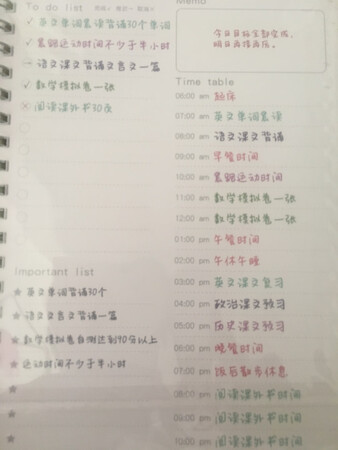 To do list
✓ 英文单词晨读背诵30个单词
✓ 晨跑运动时间不少于半小时
→ 语文课文背诵文言文一篇
✓ 数学模拟卷一张
⊗ 阅读课外书30页
Important list
★ 英文单词背诵30个
★ 语文文言文背诵一篇
★ 数学模拟卷自测达到90分以上
★ 运动时间不少于半小时
★
★
★
★
Memo
今日目标全部完成,
明日再接再历。
Time table
06:00 am 起床
07:00 am 英文单词晨读
08:00 am 语文课文背诵
09:00 am 早餐时间
10:00 am 晨跑运动时间
11:00 am 数学模拟卷一张
12:00 am 数学模拟卷一张
01:00 pm 午餐时间
02:00 pm 午休午睡
03:00 pm 英文课文复习
04:00 pm 政治课文预习
05:00 pm 历史课文预习
06:00 pm 晚餐时间
07:00 pm 饭后散步休息
08:00 pm 阅读课外书时间
09:00 pm 阅读课外书时间
10:00 pm 阅读课外书时间